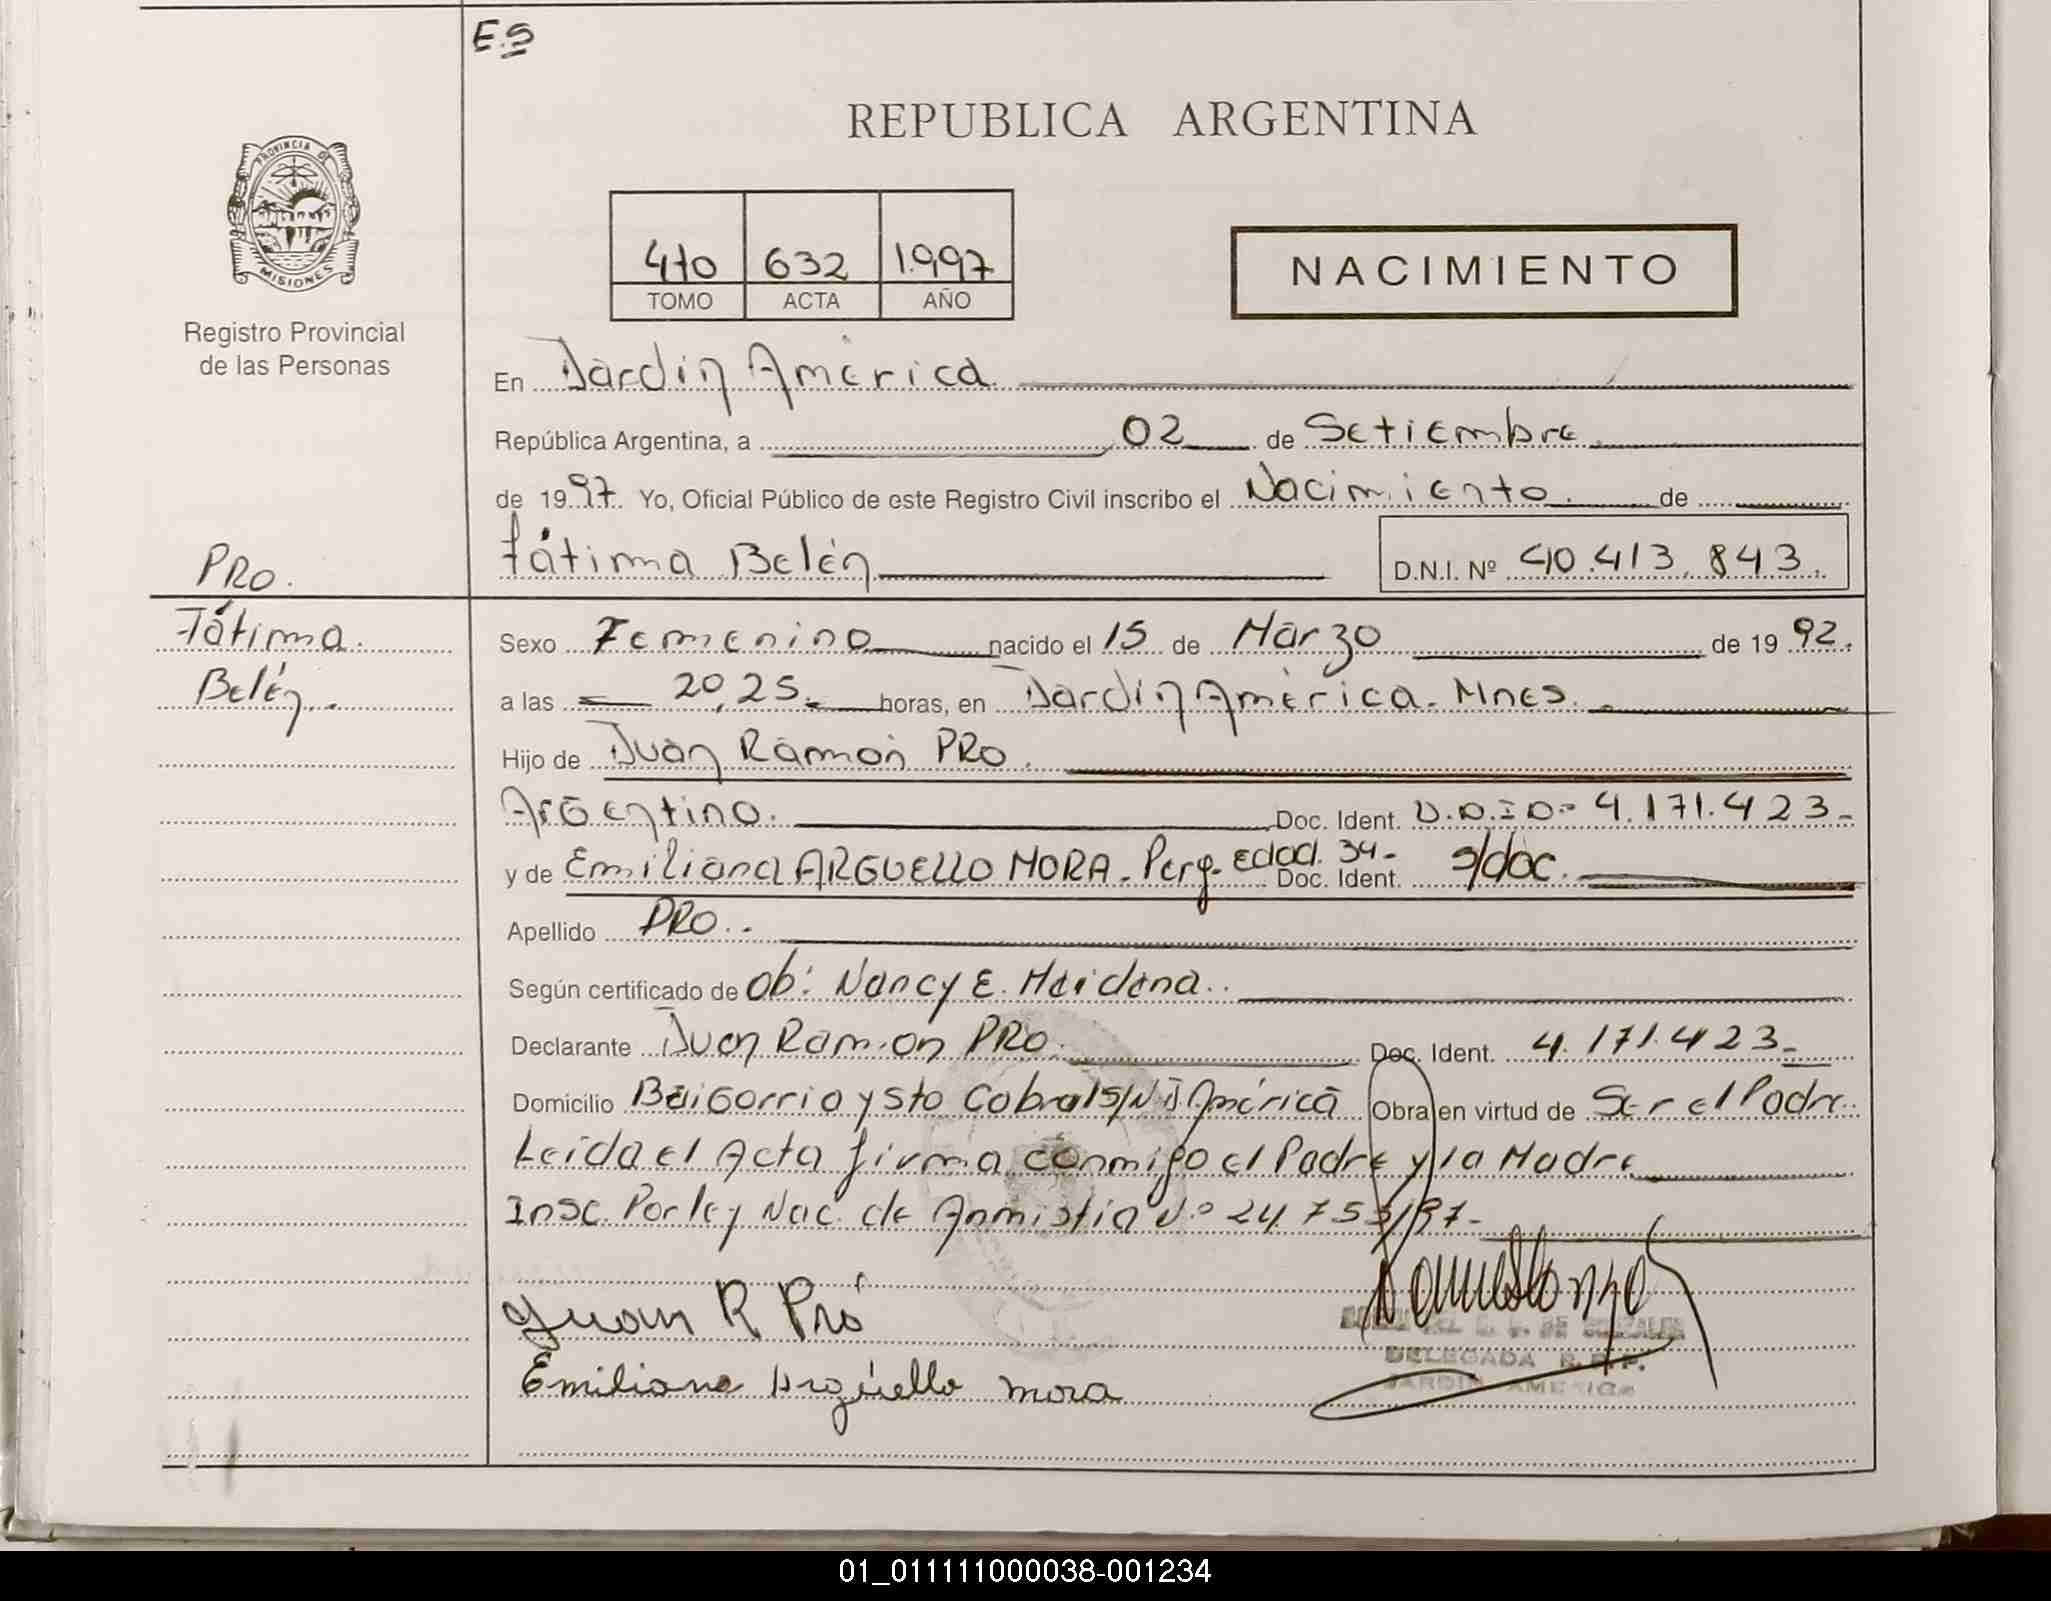 E.S
REPUBLICA ARGENTINA
PROVINCIA DE
MISIONES
Registro Provincial
de las Personas
410 632 1.997
TOMO ACTA AÑO
NACIMIENTO
En Jardín América
República Argentina, a 02 de Setiembre
de 1997. Yo, Oficial Público de este Registro Civil inscribo el Nacimiento de
Fátima Belén D.N.I. Nº 40.413.843.
PRO.
Fátima.
Belén.
Sexo Femenino nacido el 15 de Marzo de 1992.
a las 20,25. horas, en Jardín América. Mnes.
Hijo de Juan Ramón PRO.
Argentino. Doc. Ident. 4.171.423-
y de Emiliana ARGUELLO MORA - Parg. Edad. 34- Doc. Ident. s/doc.
Apellido PRO.
Según certificado de ob: Nancy E.
Declarante Juan Ramon PRO. Doc. Ident. 4.171.423-
Domicilio Baigorria y Sto Cabral S/N J América Obra en virtud de Ser el Padre
Leida el Acta firma conmigo el Padre y la Madre
Insc. Por ley Nac. de Anmistia N.º 24.755/97-
Juan R Pró
Emiliana Argüello Mora
DE GONZALES
DELEGADA R.P.P.
JARDIN AMERICA
01_011111000038-001234